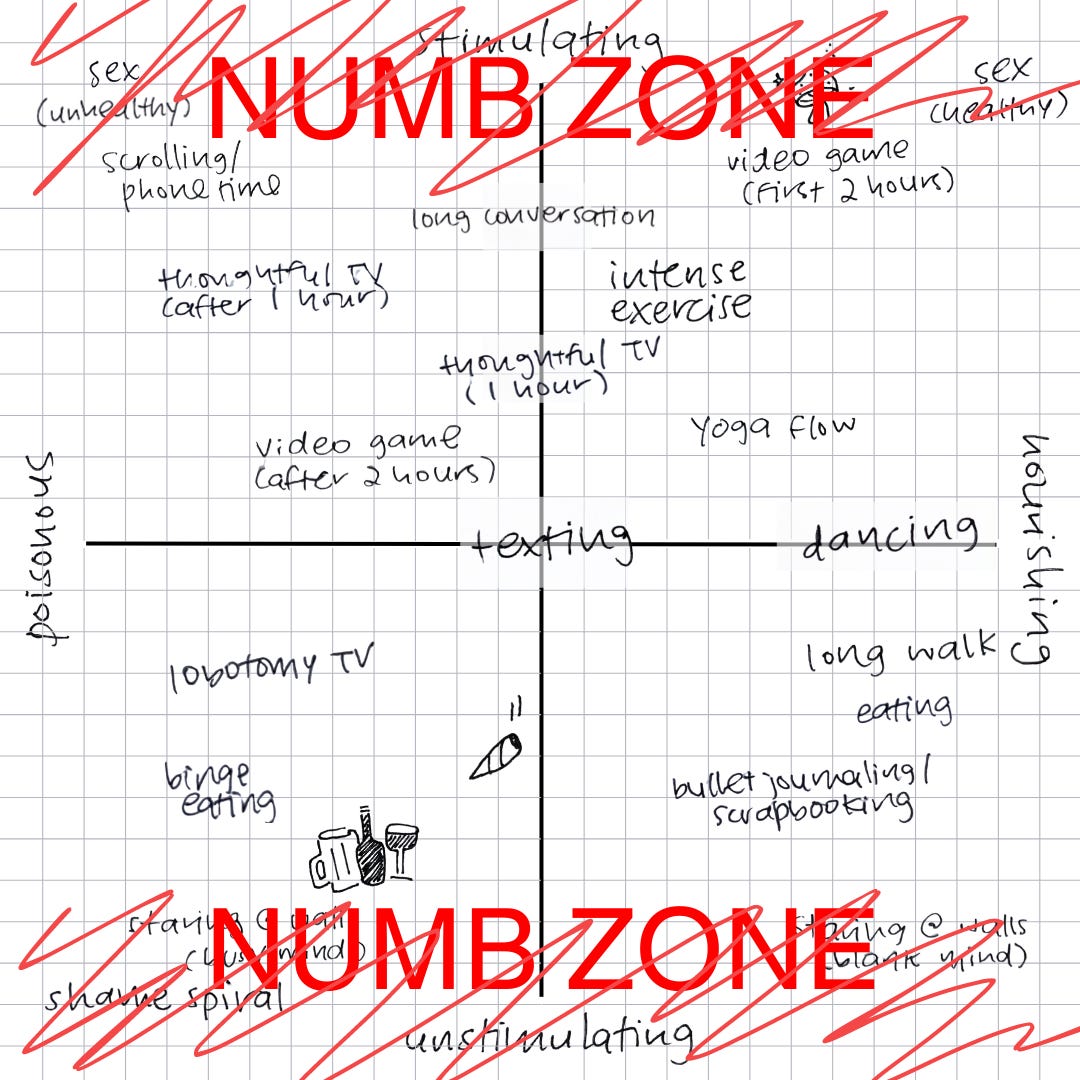 stimulating
NUMB ZONE
sex
(unhealthy)
sex
(healthy)
scrolling/
phone time
video game
(first 2 hours)
long conversation
thoughtful TV
(after 1 hour)
intense
exercise
thoughtful TV
(1 hour)
video game
(after 2 hours)
yoga flow
poisonous
nourishing
texting
dancing
lobotomy TV
long walk
eating
binge
eating
bullet journaling/
scrapbooking
NUMB ZONE
staring @ wall
(busy mind)
staring @ walls
(blank mind)
shame spiral
unstimulating